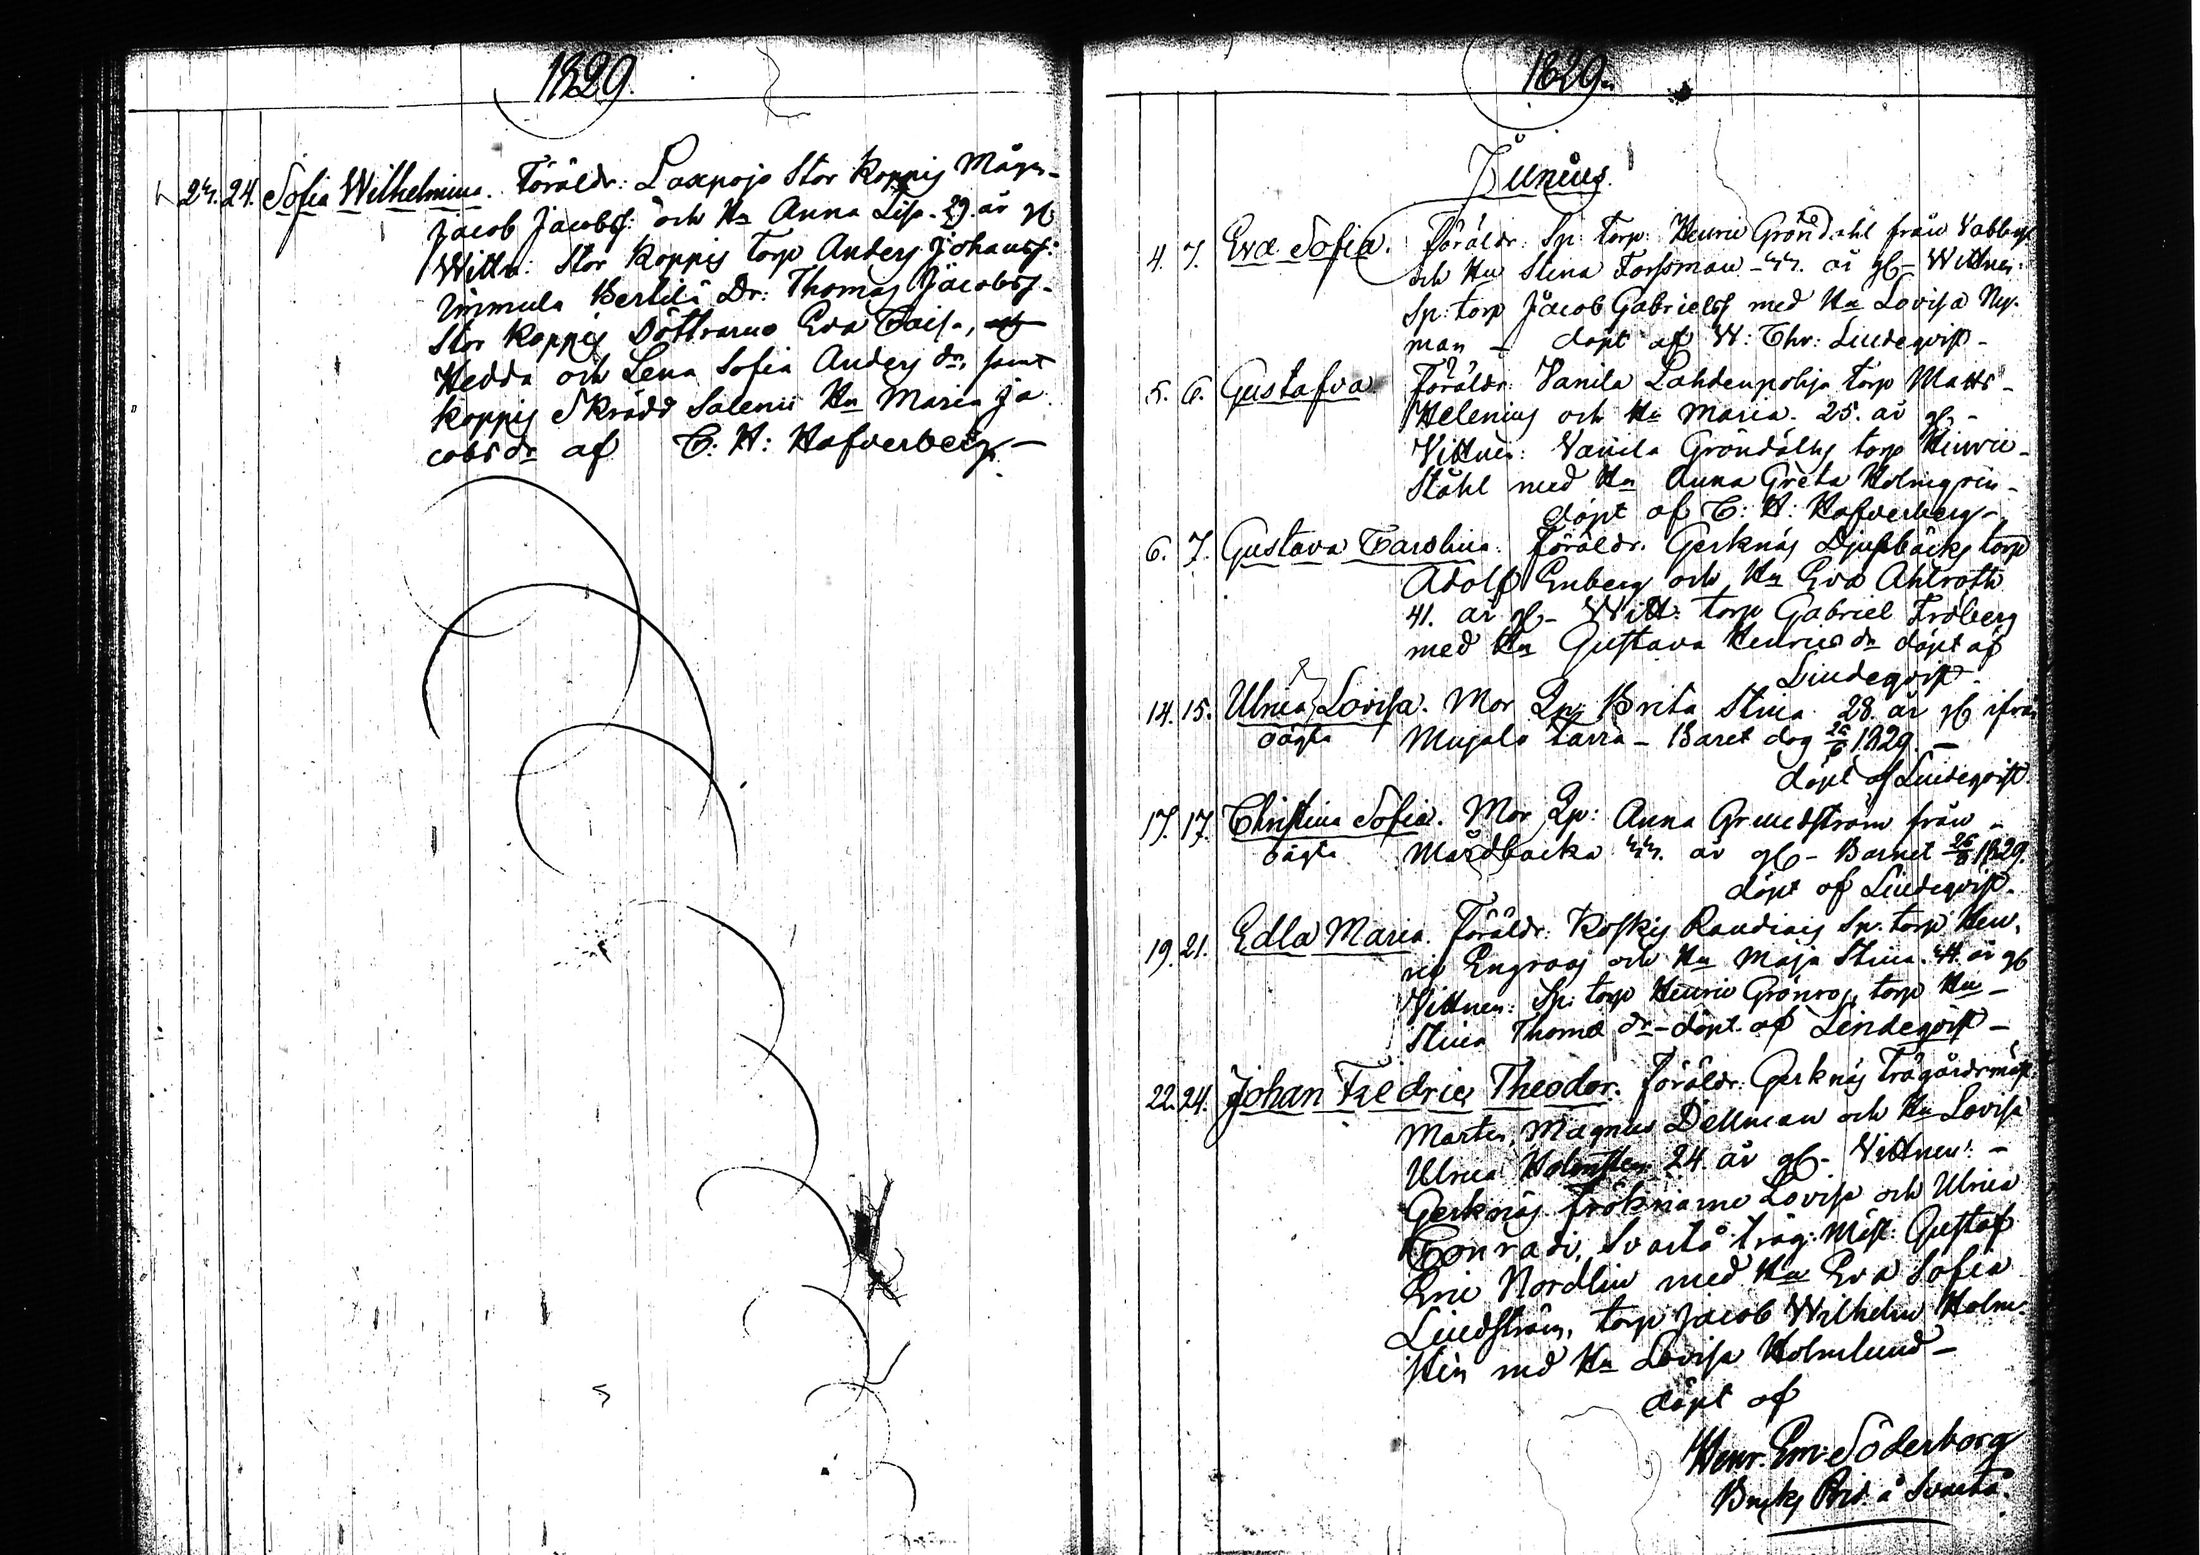 1829.
23. 24. Sofia Wilhelmina. Föräldr: Laxpojo Stor Koppis Mågen
Jacob Jacobss: och Hu Anna Lisa. 29. år gl
Wittn: Stor Koppis torp Anders Johanss:
Immula Bertilä Dr: Thomas Jacobss.
Stor Koppis Döttrarne Eva Caisa,
Hedda och Lena Sofia Anders dr. samt
Koppis Skrädd Salenii Hu Maria Ja
cobs dr af C. H: Hafverberg.
1829.
Junius.
4. 7. Eva Sofia. Föräldr: Sp: torp: Henric Gröndahl från
och Hu Stina Forssman - 33. år gl - Wittnen:
Sp: torp Jacob Gabrielss med Hu Lovisa Ny-
man - döpt af W: Chr: Lindeqvist -
5. 6. Gustafva. Föräldr: Vanila Lahdenpohja torp Matts
Helenius och Hu Maria. 25. år gl -
Vittnen: Vanila Gröndahls torp Henric
Ståhl med Hu Anna Greta Holmqvin -
döpt af C: H: Hafverberg -
6. 7. Gustava Carolina. Föräldr. Gerknäs Djupbäcks torp
Adolf Enberg och Hu Eva Ahlroth
41. år gl - Witt: torp Gabriel Fröberg
med Hu Gustava Henrics dr döpt af
Lindeqvist -
14. 15. Ulrica Lovisa. Mor Qp: Brita Stina 28. år gl ifrån
oägta Mujala - Baret dog 26/6 1829. -
döpt af Lindeqvist.
17. 17. Christina Sofia. Mor Qp: Anna Grundström från -
oägta Mårdbacka 33. år gl - Barnet 26/8 1829.
döpt af Lindeqvist.
19. 21. Edla Maria. Föräldr: Koskis Sp: torp Hen-
ric Engroos och Hu Maja Stina. 44. år gl
Vittnen: Sp: torp Henric Grönroos, torp Hu -
Stina Thomæ dr - döpt af Lindeqvist -
22. 24. Johan Fredric Theodor. Föräldr: Gerknäs Trägårdsmäst:
Marten Magnus Dellman och Hu Lovisa
Ulrica Holmsten 24. år gl - Vittnen: -
Gerknäs Fröknarne Lovisa och Ulrica
Conradi, Svartå Träg: Mäst: Gustaf
Eric Nordlin med Hu Eva Sofia
Lindström, torp Jacob Wilhelm Holm-
stén md Hu Lovisa Holmlund -
döpt af
Henr. Em: Söderborg
Bruks Pred. å Svartå.